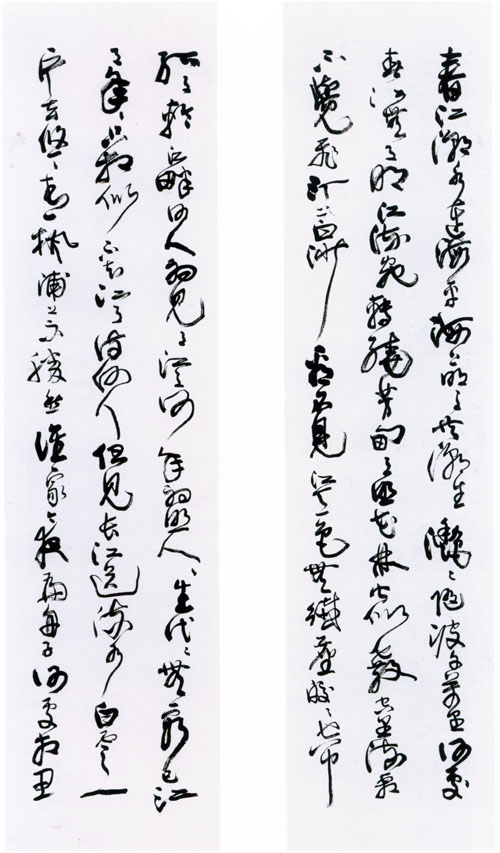 春江潮水連海平海上明月共潮生灧々隨波千萬里何處
春江無月明江流宛轉繞芳甸月照花林皆似霰空里流霜
不覺飛汀上白沙看不見江天一色無纖塵皎々空中
孤月輪江畔何人初見月江月何年初照人々生代々無窮已江
月年々只相似不知江月待何人但見長江送流水白雲一
片去悠々青楓浦上不勝愁誰家今夜扁舟子何處相思